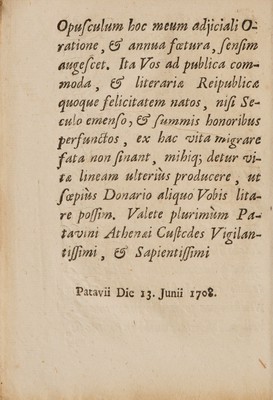 Opuſculum hoc meum adjiciali O-
ratione, & annua fœtura, ſenſim
augeſcet. Ita Vos ad publica com-
moda, & literariæ Reipublicæ
quoque felicitatem natos, niſi Se-
culo emenſo, & ſummis honoribus
perfunctos, ex hac vita migrare
fata non ſinant, mihiq; detur vi-
tæ lineam ulteriùs producere, ut
ſœpiùs Donario aliquo Vobis lita-
re poſſim. Valete plurimùm Pa-
tavini Athenæi Cuſtodes Vigilan-
tiſſimi, & Sapientiſſimi
Patavii Die 13. Junii 1708.